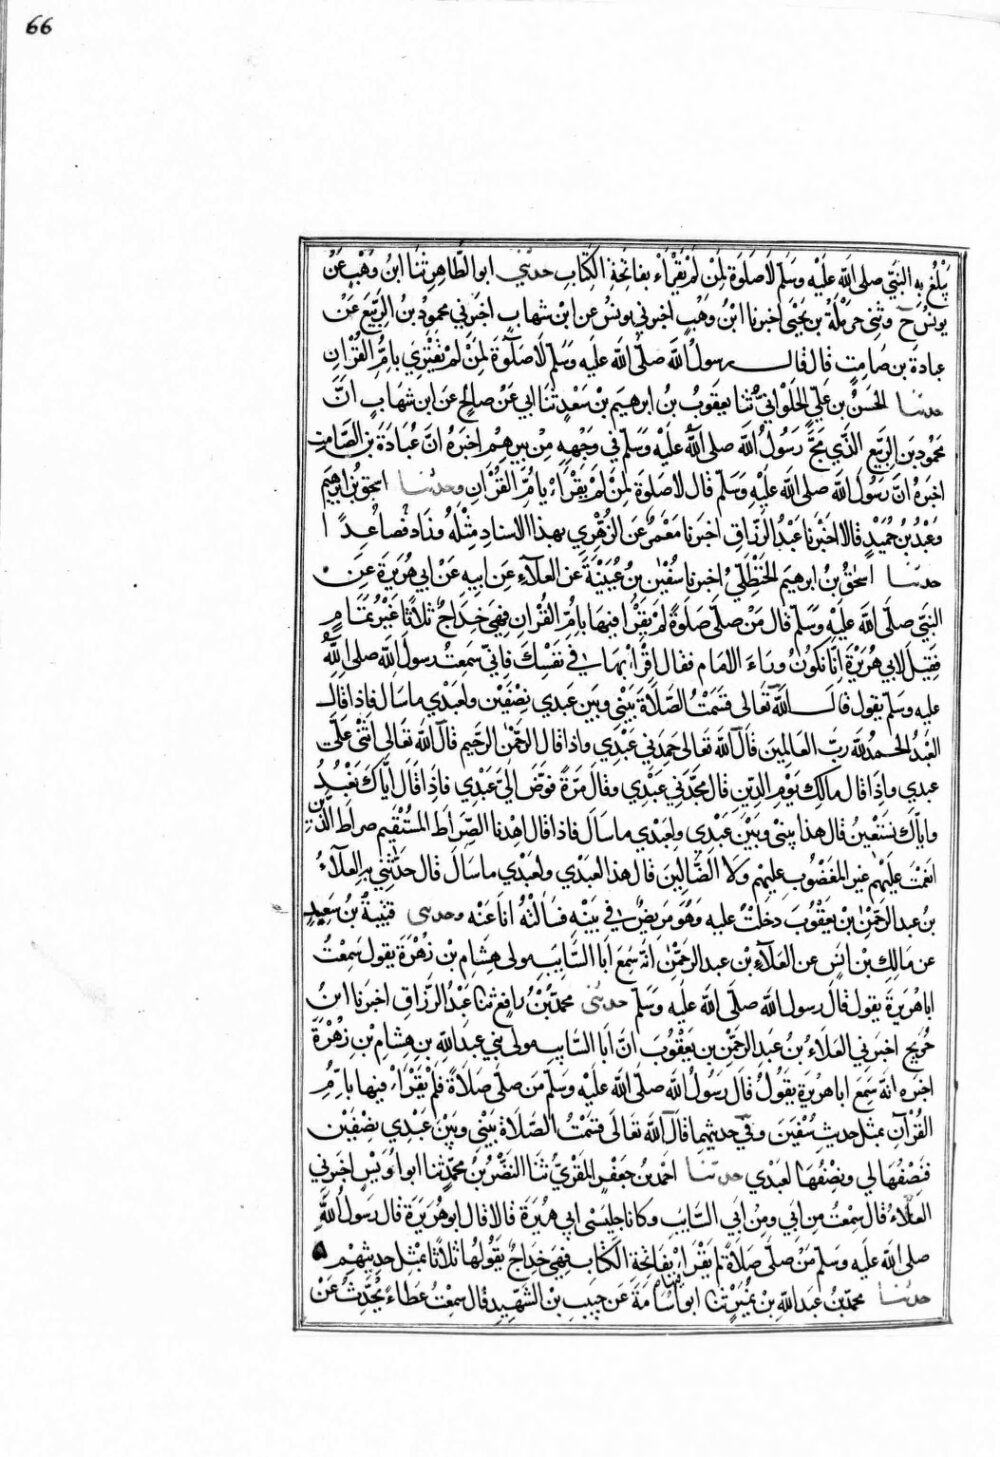 66
يَبْلُغُ بِهِ النَّبِيَّ صلى الله عَلَيْهِ وَسَلَّمَ لَا صَلَوةَ لِمَنْ لَمْ يَقْرَاء بفَاتحَةِ الكِتَابِ حدثني ابو الطَّاهِرِ ثَنَا ابنُ وَهْبٍ عَنْ
يونُسَ ح وثنى حَرْمَلَةُ بن يَحْيَى اخبرنا ابْنُ وَهْبٍ اخبرني يونسُ عن ابْن شهابٍ اخبَرَني محمودُ بنُ الرَّبِيْعِ عَنْ
عبادَة بن صَامِتٍ قال قال رسولُ اللهِ صلّى الله عليه وسلّم لَا صَلٰوةَ لِمَنْ لَمْ يَقْتَرِي بامِّ القُرْاٰنِ
حدثنا الحَسَنُ بن عَلِيٍّ الحَلْوَانيُّ ثنا يعقوبُ بنُ ابرهيمَ بن سَعْدٍ ثَنَا ابي عَنْ صالحٍ عَنِ ابن شهابٍ انَّ
مَحْمُودَ بنَ الرَّبِيعِ الَّذي مَجَّ رَسُولُ اللهِ صلى اللهُ عَلَيْهِ وَسَلَّمَ في وَجْهِهِ مِنْ بيرهِمْ اخبَرَهُ انَّ عُبَادَةَ بنَ الصَّامِتِ
اخبَرَهُ انَّ رَسُولَ الله صلى الله عليه وَسَلَّم قال لا صَلوةَ لِمَنْ لَمْ يَقْرَاءْ بامِّ القُرْاٰنِ وحدثنا اسحقُ بنُ ابرهيمَ
وَعَبْدُ بنُ حُمَيْدٍ قالا اخبَرَنا عَبْدُ الرَّزَّاقِ اخبَرَنا مَعْمَرٌ عَنِ الزُّهْرِيِ بهذا الاسنادِ مِثْلَهُ وزادَ فصَاعِدًا
حدثنا اسحٰقُ بنُ ابرهيمَ الحَنْظَلِيُّ اخبرنا سُفْيٰنُ بنُ عُيَيْنَةَ عَنِ العلآءِ عَن ابيهِ عَنْ ابي هُرَيْرَةَ عَنِ
النبيّ صلَّى الله عليْهِ وَسَلَّمَ قال مَنْ صلَّى صَلَوةً لَمْ يَقْرَأ فيهَا بامِّ القُرْاٰنِ فَهِيَ خِدَاجٌ ثلاثًا غَيْرُ تمَامٍ
فَقِيلَ لابي هُرَيْرَةَ اِنّا نكونُ وراءَ الامَام فقال اقْرأْ بهَا في نَفْسِكَ فَاِنِّي سَمِعتُ رسولَ اللهِ صلى اللهُ
عليه وسَلَّم يقول قال اللهُ تعَالى قَسَمْتُ الصَّلَاةَ بَيْنِي وبَيْنَ عبدي نِصْفَيْنِ ولعَبْدي ما سَالَ فاذا قال
العَبْدُ الحمدُ للهِ ربِّ العَالمِينَ قال اللهُ تعَالى حَمِدَني عَبْدِي واذا قال الرَّحمٰنِ الرَّحِيمِ قال اللهُ تعَالى اَثْنَى عَلَيَّ
عبدي واذَا قال مالكِ يَوْمِ الدِّينِ قال مَجَّدَني عَبْدي وقال مَرَّةً فوَّضَ اِلَيَّ عَبْدِي فاِذَا قَال ايَّاكَ نَعْبُدُ
وايّاكَ نستَعينُ قال هذا بيني وبَيْنَ عَبْدِي ولعَبْدي ما سَاَلَ فاذا قال اهْدِنا الصِّرَاطَ المُسْتَقِيم صِراط الَّذينَ
انعَمْتَ عَلَيْهِم غير المَغضُوب عليْهِم وَلَا الضَّالِينَ قال هذا لعَبْدي ولعَبْدي ما سَالَ قال حدَّثَنِي بهِ العلَآءُ
بنُ عبدِ الرَّحمٰنِ بنِ يعقُوبَ دخَلْتُ عليه وَهُوَ مَرِيضٌ في بَيْتِهِ فسَالْتُهُ انا عَنْه وحدثني قتَيْبَةُ بنُ سَعِيدٍ
عن مَالِكِ بْنِ انَسٍ عن العَلَآءِ بْن عبد الرحمٰن انّه سَمِعَ ابَا السَّايبِ مولى هِشَامِ بْنِ زُهْرَةَ يقول سَمِعْتُ
ابا هُرَيرةَ يقول قالَ رسولُ الله صلَّى الله عليهِ وَسَلَّمَ حدثني محمَّدُ بْنُ رافِعٍ ثنَا عَبْدُ الرَّزَّاقِ اخبَرَنا ابنُ
جُرَيج اخبرَني العَلَاءُ بنُ عَبدِ الرحمٰن بن يَعْقُوبَ انَّ ابَا السَّايبِ مولى بَني عبدِ اللهِ بنِ هشَامِ بْنِ زُهْرَةَ
اخبَرَه انّهَ سَمِعَ ابا هريرةَ يقولُ قال رَسُولُ اللهِ صلّى الله عليه وسَلَّم مَن صلّى صَلَاةً فلَمْ يَقْرَاءْ فيها بامِّ
القُرْآنِ بمثلِ حديثِ سُفْيٰنَ وفي حديثِهِما قال اللهُ تعَالَى قسَمْتُ الصَّلَاةَ بَيْنِي وبَيْنَ عَبْدِي نِصْفَيْنِ
فَنِصْفُهَا لي ونِصْفُهَا لعَبْدي حدثنا احمَدُ بن جَعْفَرٍ المَقْرِيُّ ثنا النَضْرُ بنُ محمَّدٍ ثنا ابو اُوَيْسٍ اخبرَني
العَلَاءُ قال سمِعْتُ مِن ابي ومِنْ ابي السَّايبِ وكانَا جليسَيْ ابي هُرَيْرَةَ قالا قال ابو هُرَيْرَةَ قال رسولُ اللهِ
صلى الله عليه وسلّم مَنْ صلّى صَلاَةً لم يَقْرَأْ بفَاتحَةِ الكتَابِ فهِيَ خِدَاجٌ يَقُولُها ثلاثًا بمثْلِ حديثِهِمْ
حدثنا محمَّدُ بنُ عَبدِ اللهِ بن نُمَيْرٍ ثنا ابو اُسَامَةَ عَن حَبِيبِ بْنِ الشَّهِيدِ قال سمِعْتُ عَطاءً يُحَدِّثُ عَنْ